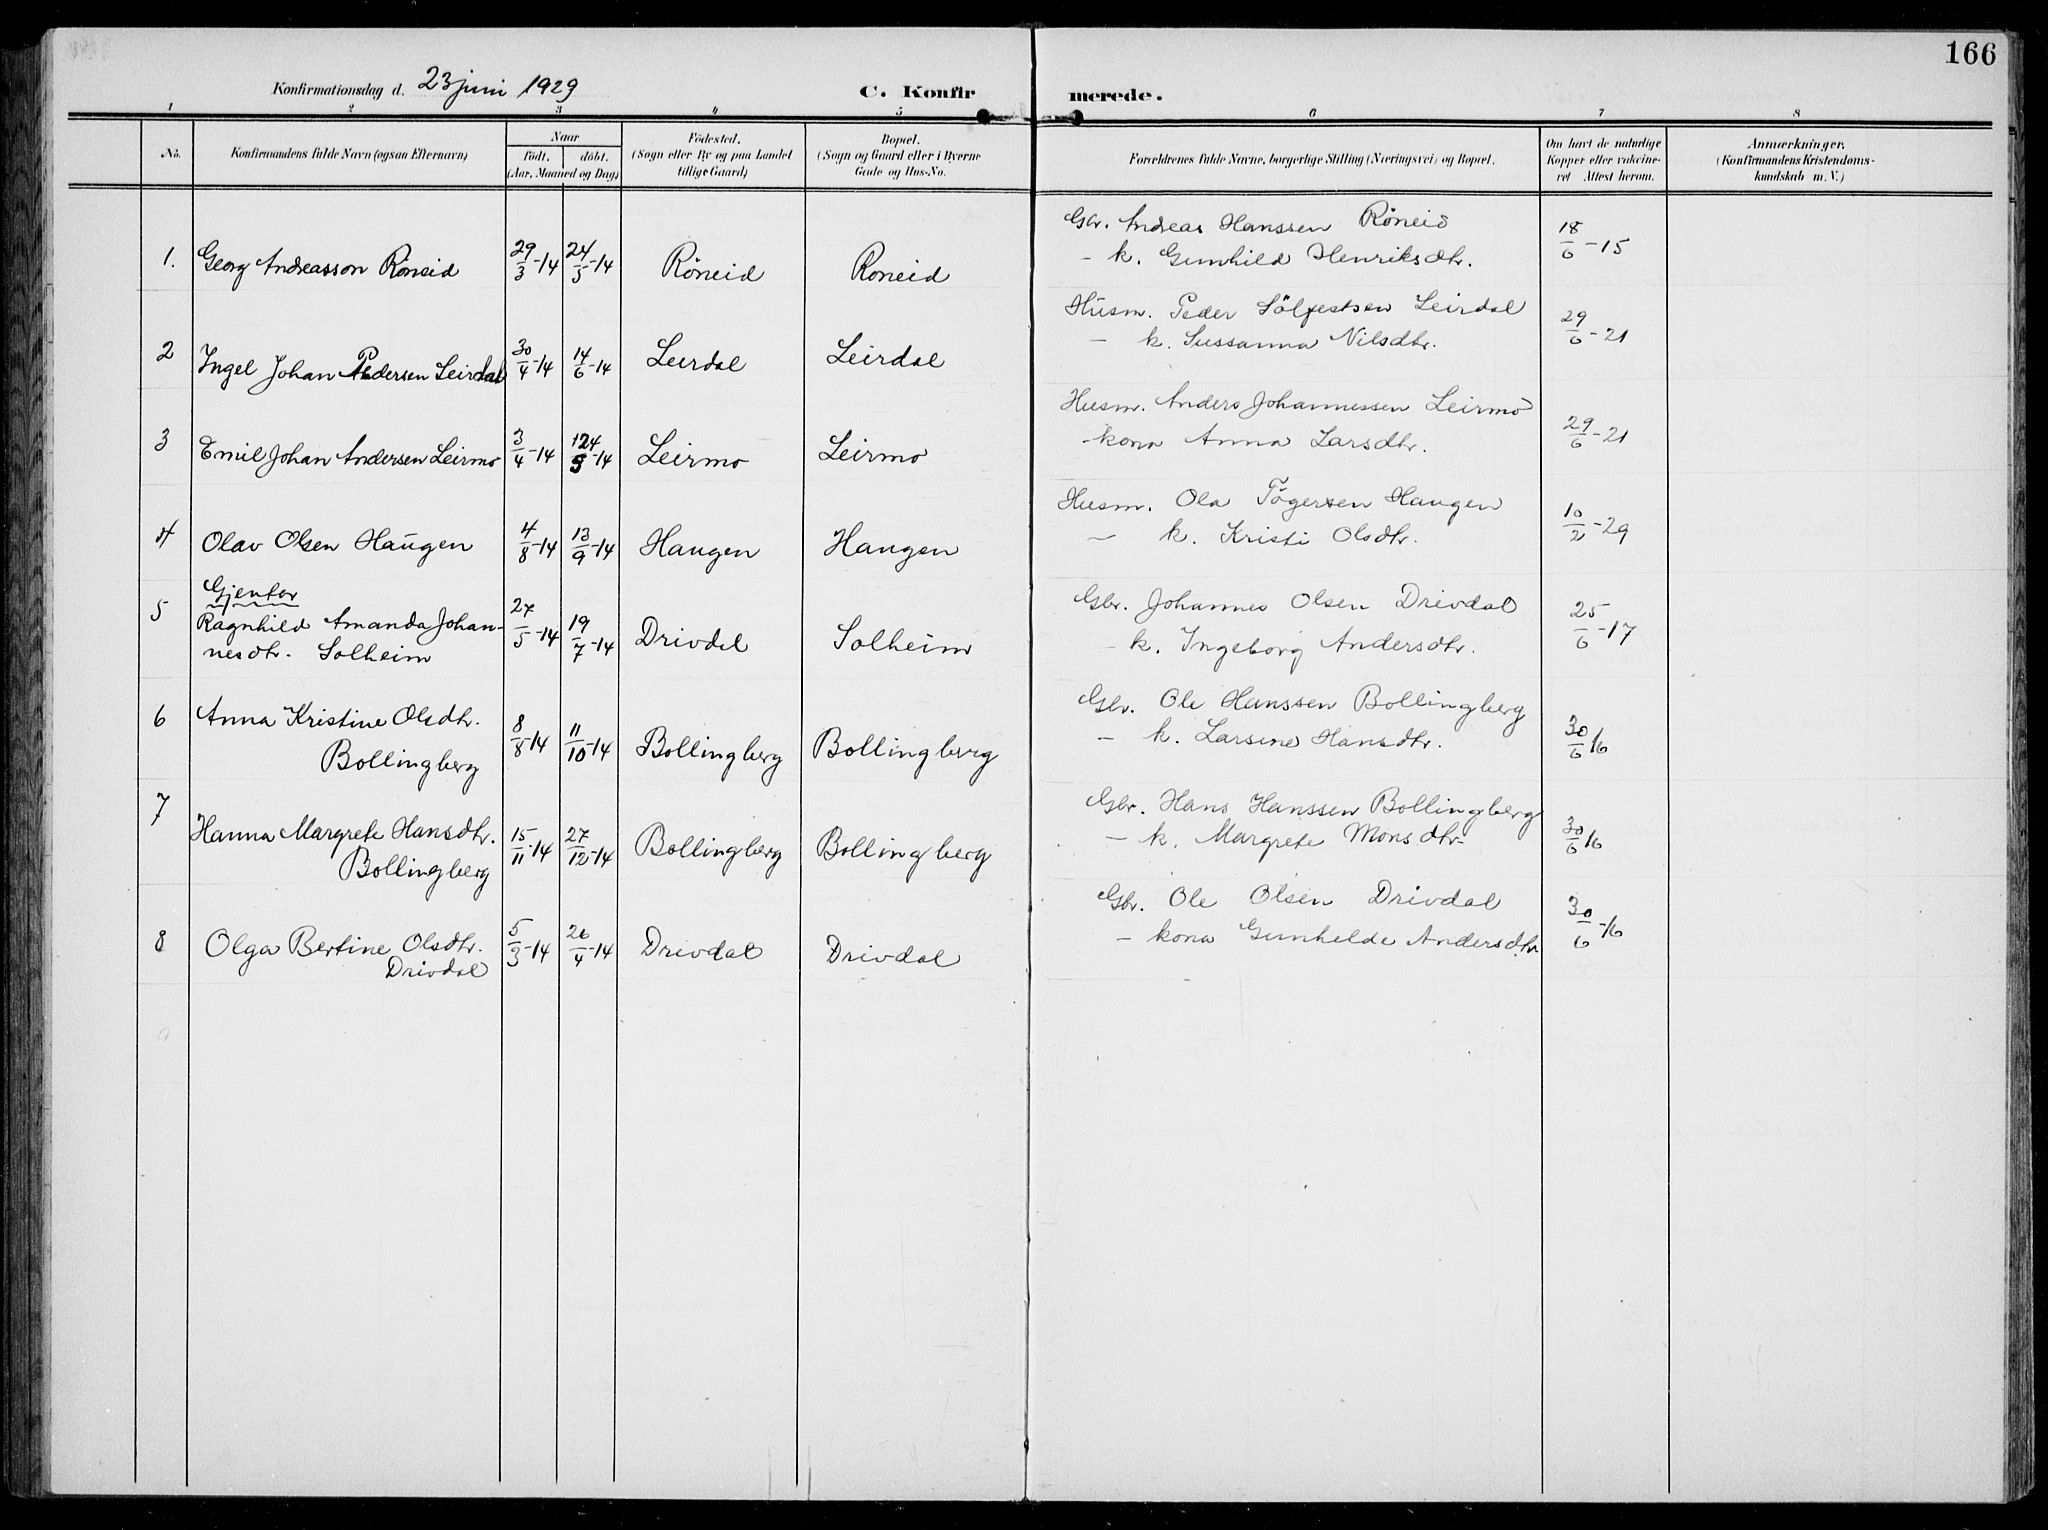 166
Konfirmationsdag d. 23 juni 1929
C. Konfirmerede.
1 2 3 4 5 6 7 8
No. Konfirmandens fulde Navn (ogsaa Efternavn) Naar Födested. Bopæl. Forældrenes fulde Navne, borgerlige Stilling (Næringsvei) og Bopæl. Om havt de naturlige Anmærkninger.
födt. döbt. (Sogn eller By og paa Landet (Sogn og Gaard eller i Byerne Kopper eller vakcine- (Konfirmandens Kristendoms-
(Aar, Maaned og Dag) tillige Gaard) Gade og Hus-No. ret Attest herom. kundskab m. V.)
Gbr. Andreas Hanssen Röneid
1. Georg Andreasson Röneid 29/3-14 24/5-14 Röneid Roneid - k. Gunhild Henriksdtr. 18/6-15
Husm. Peder Sölfestsen Leirdal
2 Ingel Johan Pedersen Leirdal 30/4-14 14/6-14 Leirdal Leirdal — k. Sussanna Nilsdtr. 29/6-21
Husm. Anders Johannessen Leirmo
3 Emil Johan Andersen Leirmo 3/4-14 Leirmo Leirmo - kona Anna Larsdtr. 29/6-21
Husm. Ola Tögersen Haugen
4 Olav Olsen Haugen 4/8-14 13/9-14 Haugen Haugen — k. Kristi Olsdtr. 10/2-29
Gjentor
Gbr. Johannes Olsen Drivdal
5 Ragnhild Amanda Johan- 27/5-14 19/7-14 Drivdal Solheim - k. Ingeborg Andersdtr. 25/6-17
nesdtr. Solheim
Gbr. Ole Hanssen Bollingberg
6 Anna Kristine Olsdtr. 8/8-14 11/10-14 Bollingberg Bollingberg — k. Larsine Hansdtr. 30/6 16
Bollingberg
Gbr. Hans Hanssen Bollingberg
7 Hanna Margrete Hansdtr. 15/11-14 27/12-14 Bollingberg Bollingberg — k. Margrete Monsdtr 30/6 16
Bollingberg
Gbr. Ole Olsen Drivdal
8 Olga Bertine Olsdtr. 5/3-14 26/4-14 Drivdal Drivdal - kona Gunhilde Andersdtr 30/6-16
Drivdal